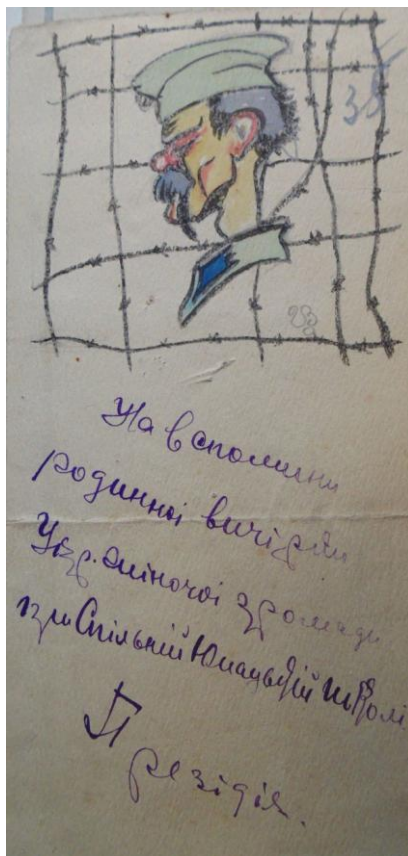 35
На вспомини
родинної вичірки
Укр. жіночої громади
при Спільній Юнацькій школі
Президія.